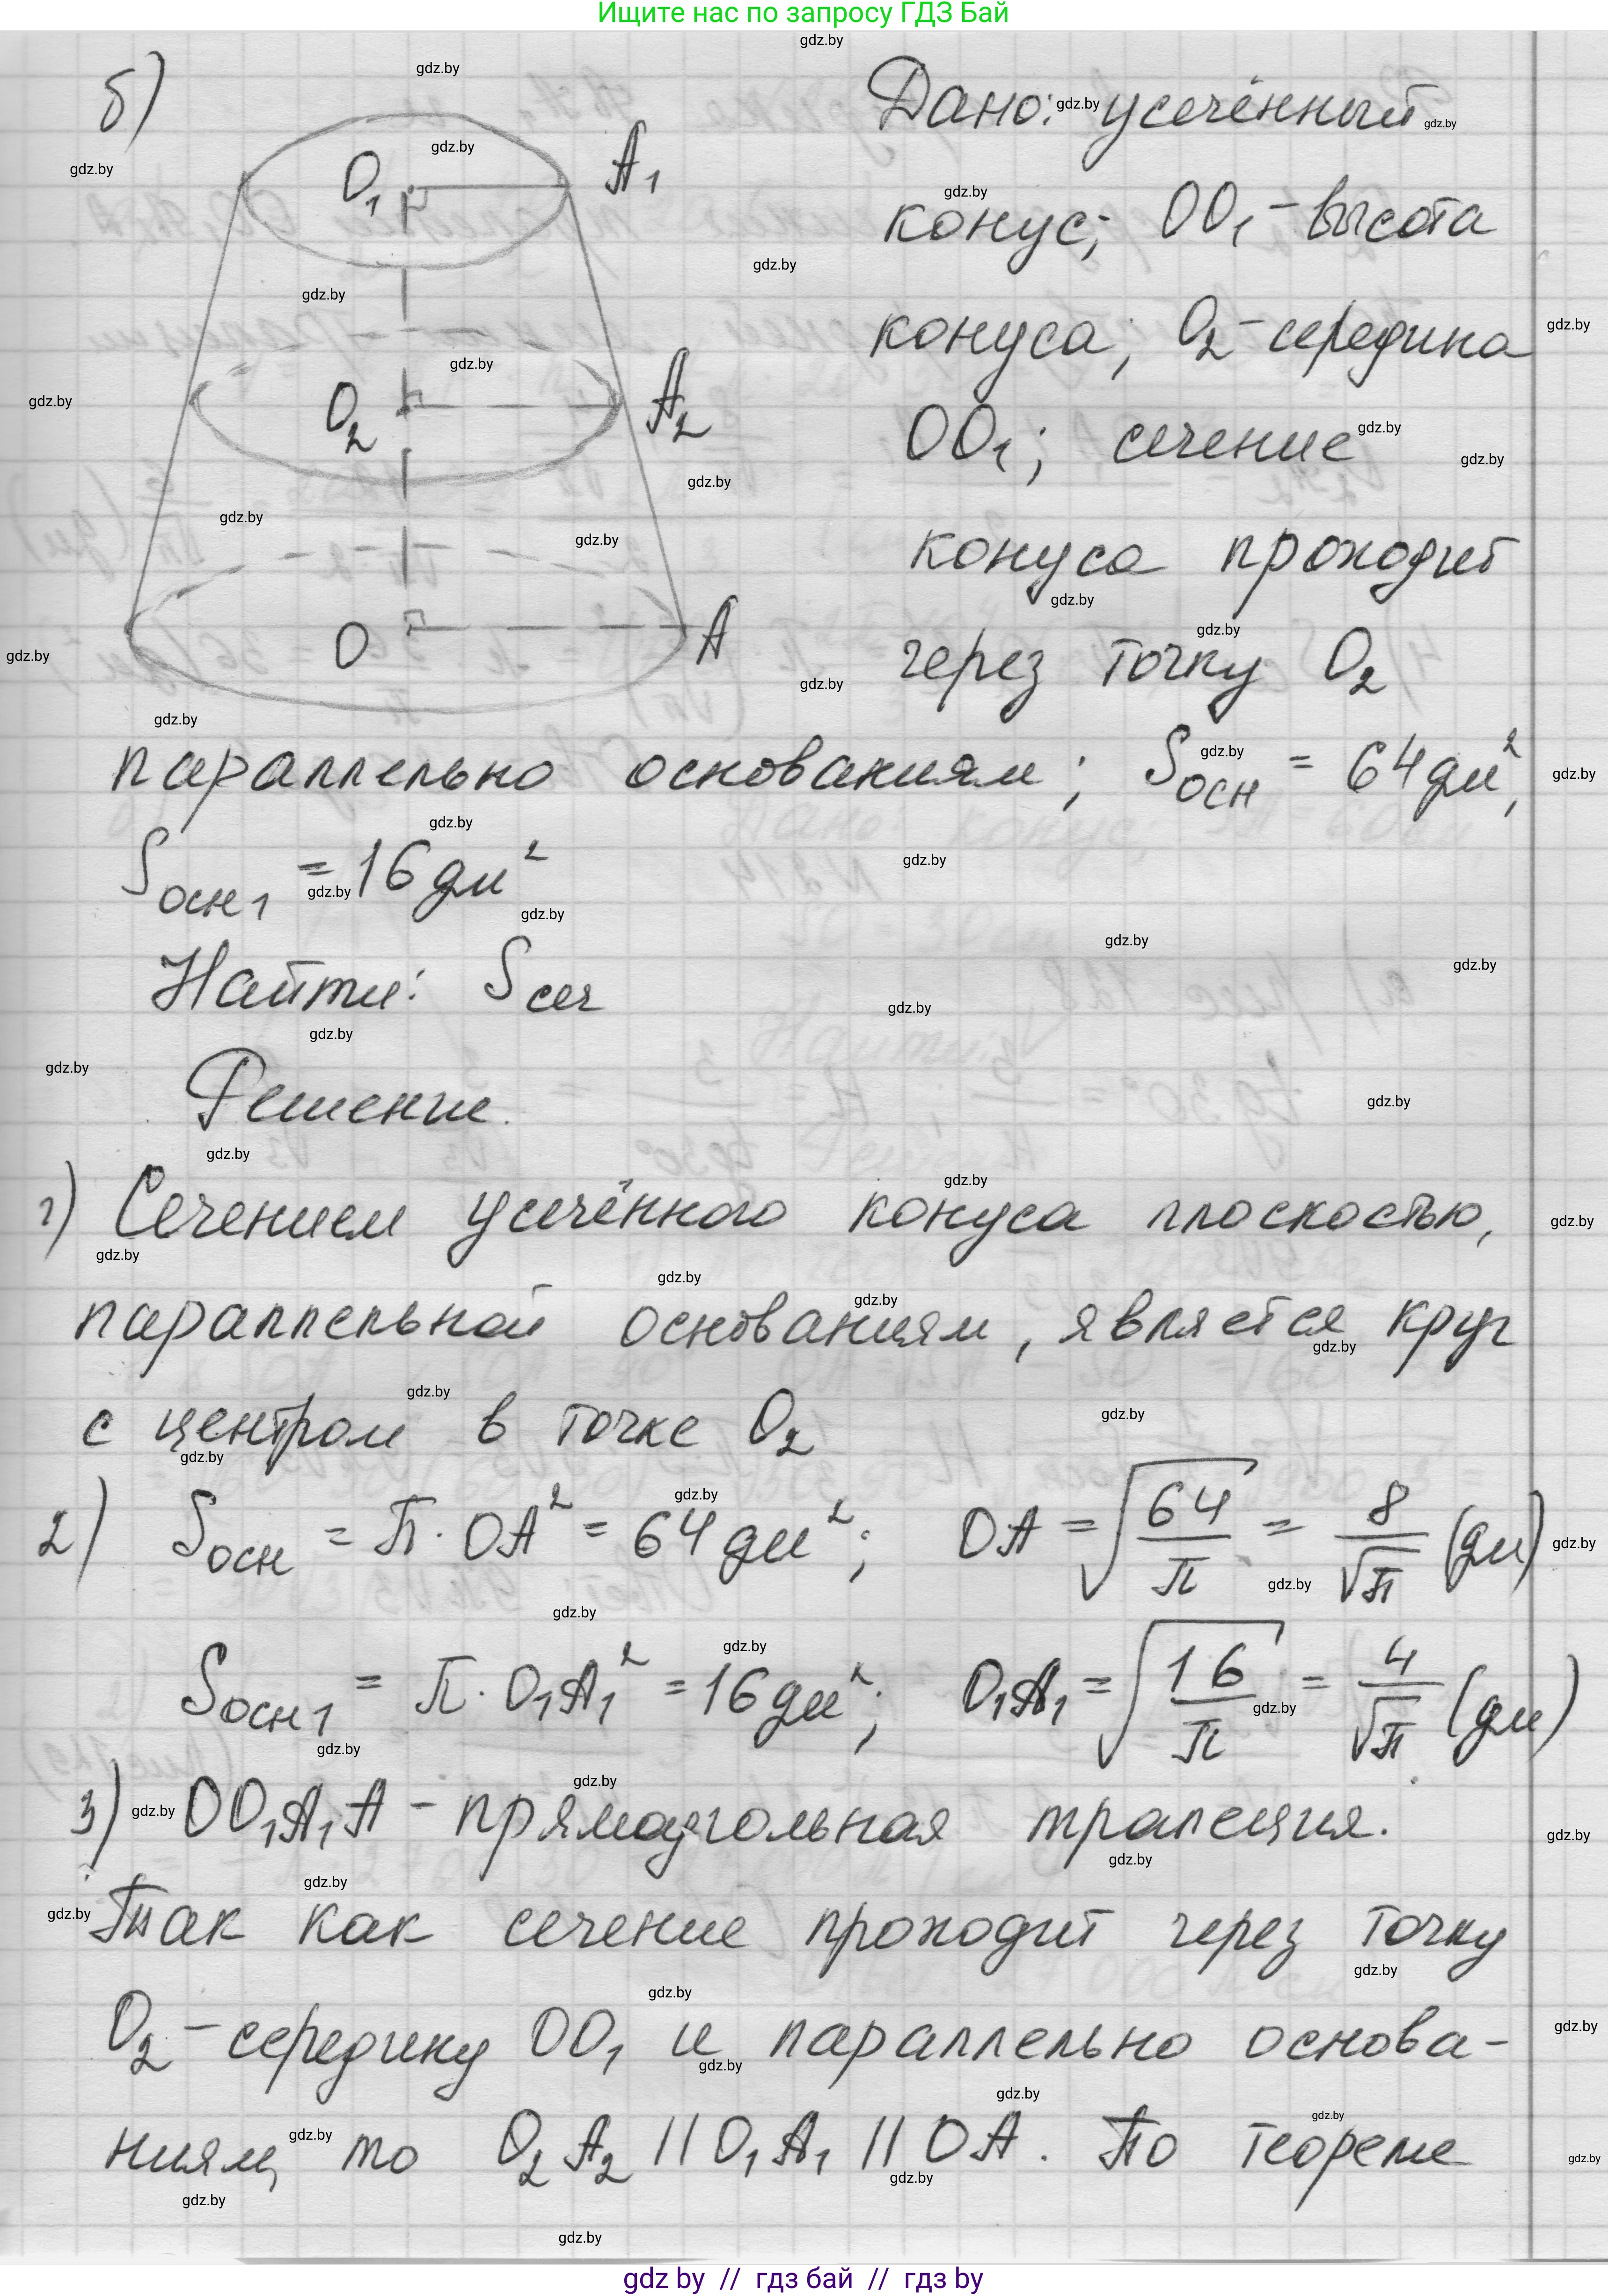 Ищите нас по запросу ГДЗ Бай
б)
O₁
A₁
O₂
A₂
O
A
Дано: усечённый
конус; OO₁ - высота
конуса; O₂ - середина
OO₁; сечение
конуса проходит
через точку O₂
параллельно основаниям; Sосн = 64 дм²,
Sосн1 = 16 дм²
Найти: Sсеч
Решение.
1) Сечением усечённого конуса плоскостью,
параллельной основаниям, является круг
с центром в точке O₂
2) Sосн = π · OA² = 64 дм²; OA = √(64/π) = 8/√π (дм)
Sосн1 = π · O₁A₁² = 16 дм²; O₁A₁ = √(16/π) = 4/√π (дм)
3) OO₁A₁A - прямоугольная трапеция.
Так как сечение проходит через точку
O₂ - середину OO₁ и параллельно основа-
ниям, то O₂A₂ || O₁A₁ || OA. По теореме
gdz by // гдз бай // гдз by